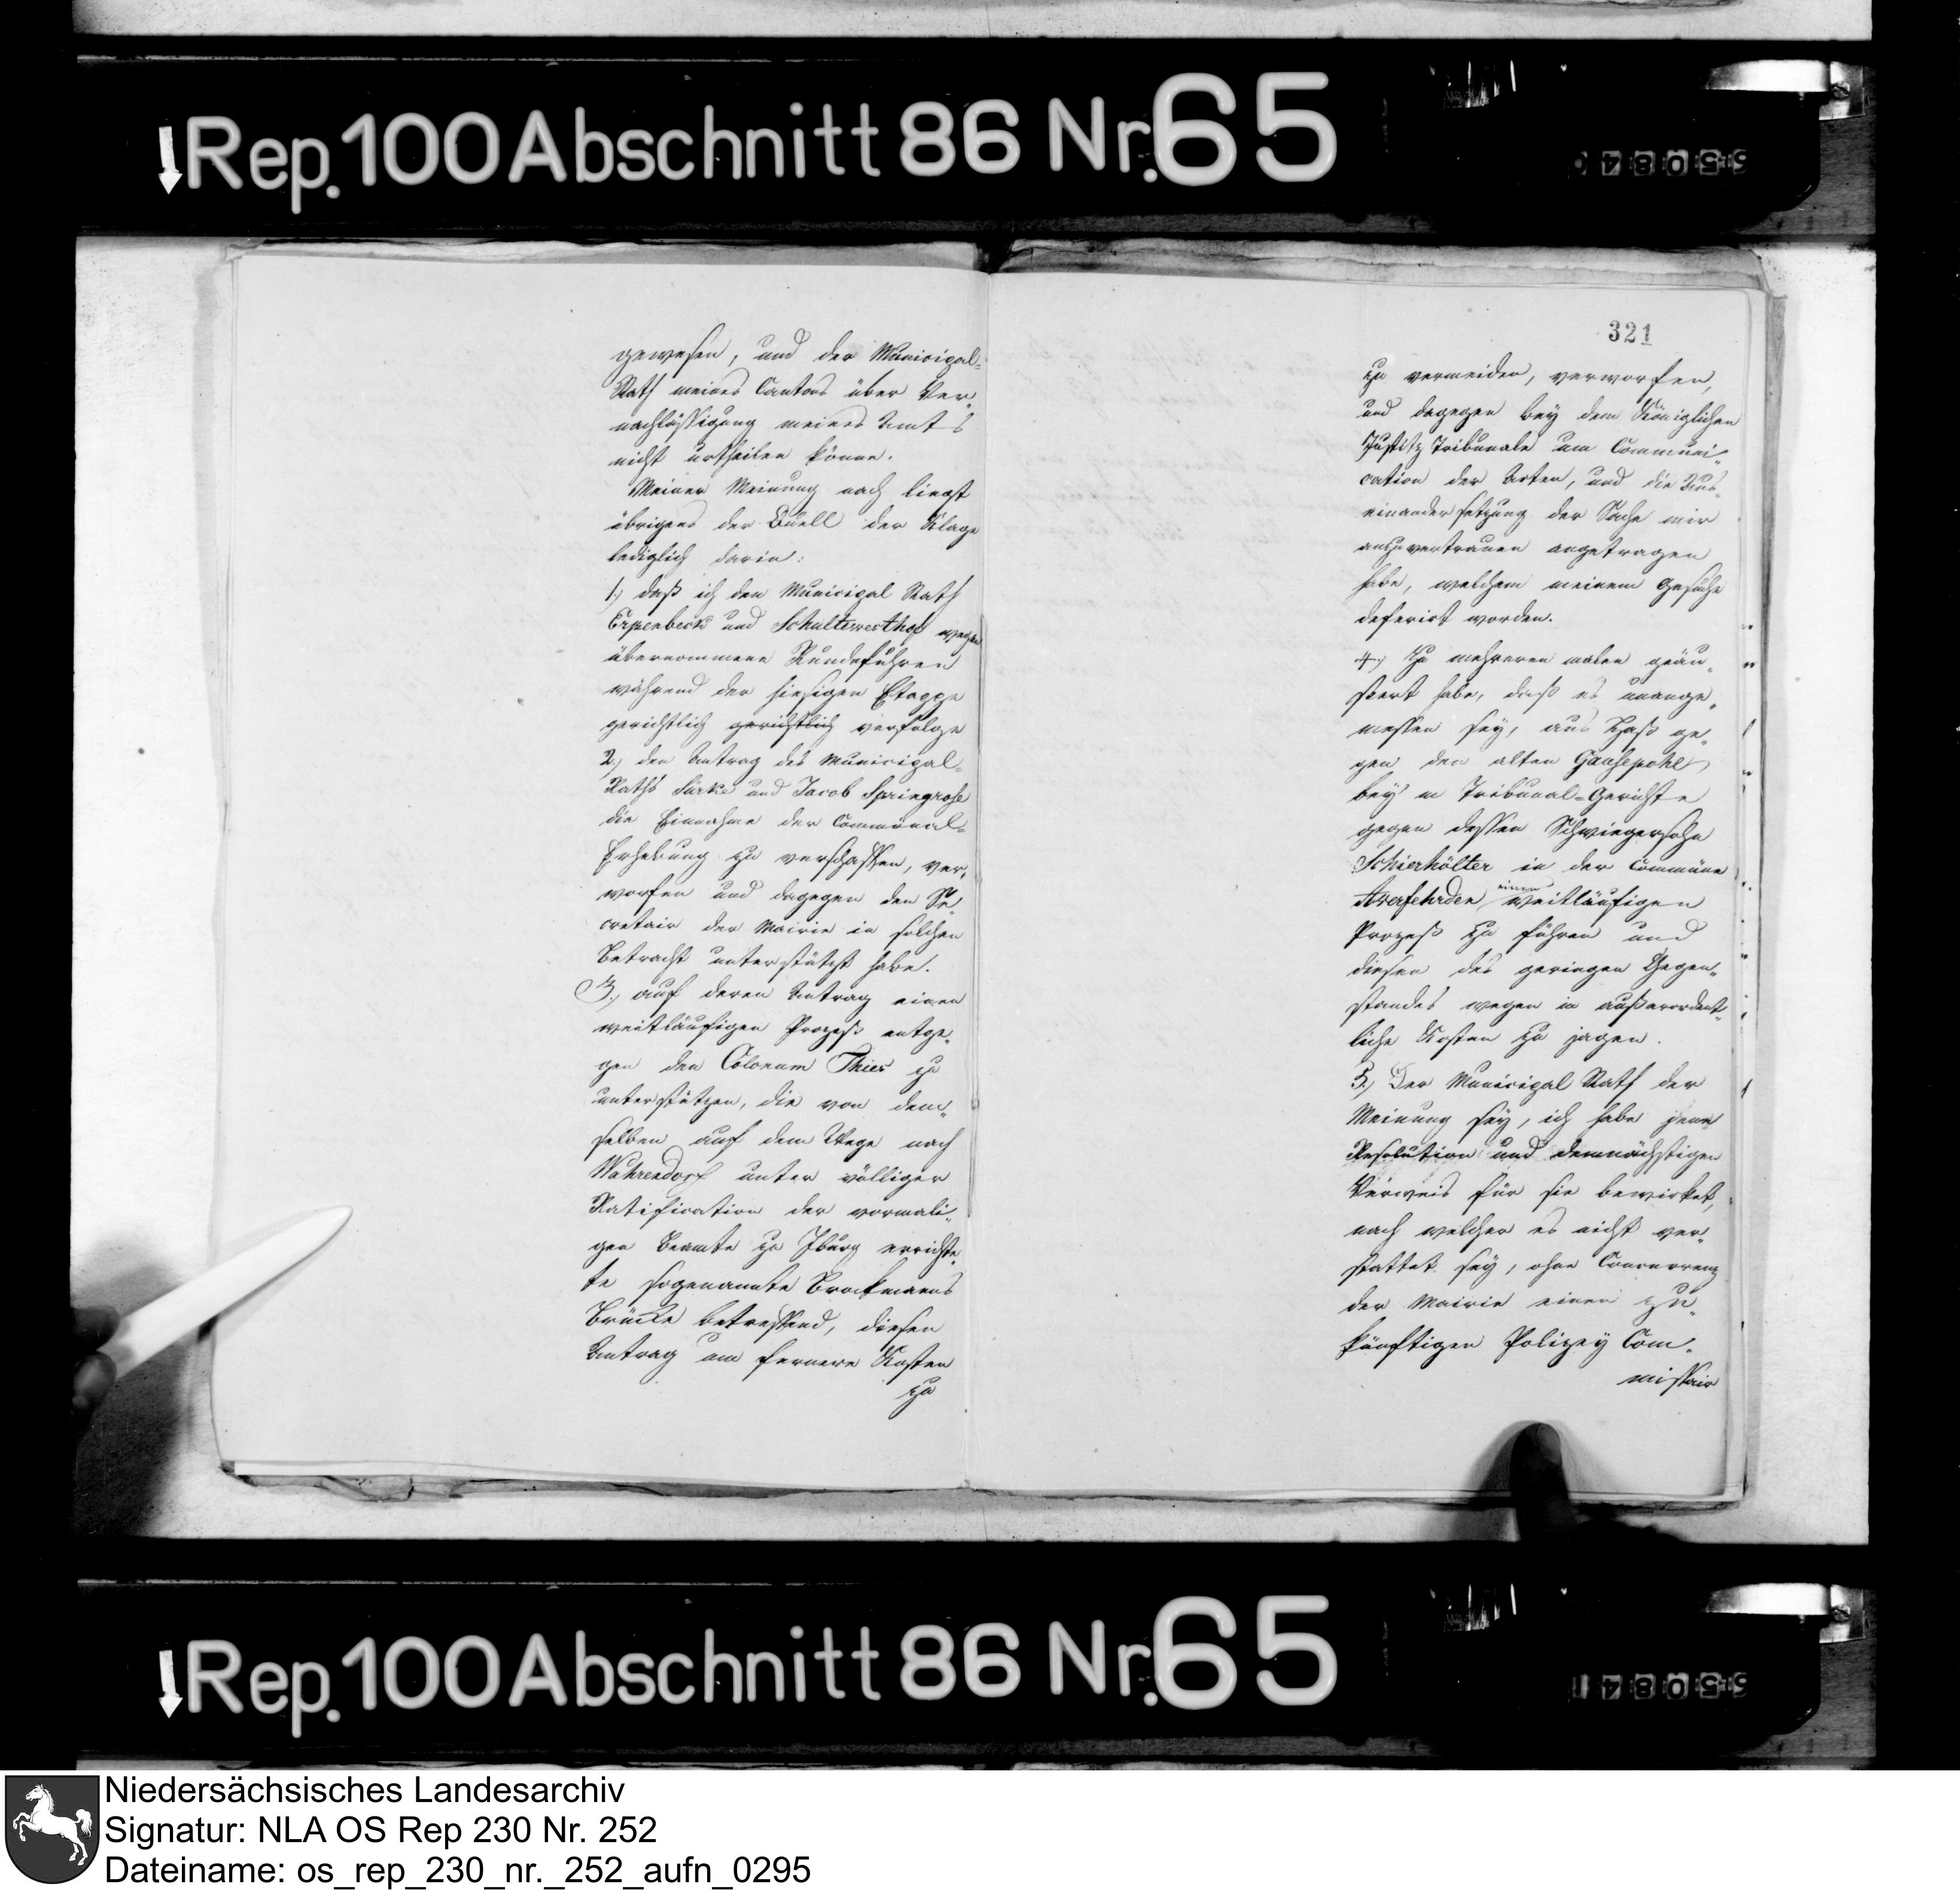 Rep. 100 Abschnitt 86 Nr. 65
gewesen, und der Municipal-
Rath meines Cantons über Ver-
nachlässigung meines Amts
nicht urtheilen könne.
Meiner Meinung nach liegt
übrigens der Quell der Klage
lediglich darin:
1.) daß ich den Municipal Rath
Erpenbeck und Schultewesthof wegen
übernommene Rundefuhren
während der hiesigen Etappe
gerichtlich gerichtlich verfolge
2.) den Antrag des Municipal-
Raths und Jacob Springrose
die Einnahme der Communal-
Erhebung zu verschaffen, ver-
worfen und dagegen den Se-
cretair der Mairie in solchen
Betracht unterstützt habe.
3.) auf deren Antrag einen
weitläufigen Prozeß entge-
gen den Colonum Thies zu
unterstützen, die von dem-
selben auf dem Wege nach
Wahrendorf unter völliger
Ratification der vormali-
gen Beamte zu Iburg errichte-
te sogenannte Brockmanns
Brücke betreffend, diesen
Antrag um fernere Kosten
zu
321
zu vermeiden, verworfen,
und dagegen bey dem Königlichen
Justitz Tribunale um Communi-
cation der Acten, und die Aus-
einandersetzung der Sache mir
anzuvertrauen angetragen
habe, welchem meinem Gesuche
deferirt worden.
4.) Zu mehreren malen geäu-
ssert habe, daß es unange-
messen sey, aus Haß ge-
gen den alten Gausepohl
bey m Tribunal-Gerichte
gegen dessen Schwiegersohn
Schierhölter in der Commüne
Averfehrden einen weitläufigen
Prozeß zu führen und
diesen des geringen Gegen-
standes wegen in außerordent-
liche Kosten zu jagen.
5.) Der Municipal Rath der
Meinung sey, ich habe jene
Resolution und demnächstigen
Verweis für sie bewirket,
nach welcher es nicht ver-
stattet sey, ohne Concurrenz
der Mairie einen zu-
künftigen Polizey Com-
missair
Rep. 100 Abschnitt 86 Nr. 65
Niedersächsisches Landesarchiv
Signatur: NLA OS Rep 230 Nr. 252
Dateiname: os_rep_230_nr._252_aufn_0295